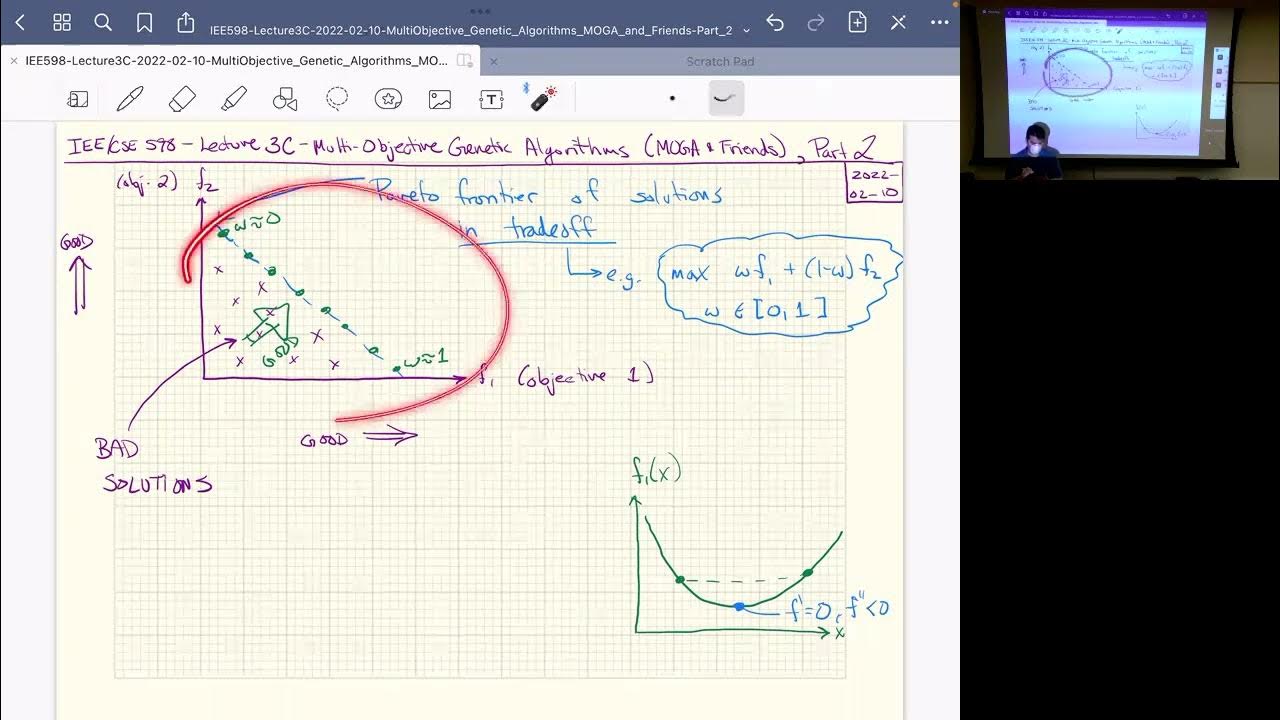 IEE598-Lecture3C-2022-02-10-MultiObjective_Genetic_Algorithms_MOGA_and_Friends-Part_2
IEE598-Lecture3C-2022-02-10-MultiObjective_Genetic_Algorithms_
Scratch Pad
IEE/CSE 598 - Lecture 3C - Multi-Objective Genetic Algorithms (MOGA & Friends), Part 2
2022-
02-10
(obj. 2) f₂
Pareto frontier of solutions
in tradeoff
w≈0
GOOD
e.g.
max wf₁ + (1-w) f₂
w ∈ [0,1]
GOOD
w≈1
f₁ (objective 1)
GOOD
BAD
SOLUTIONS
f₁(x)
f'=0, f''<0
x